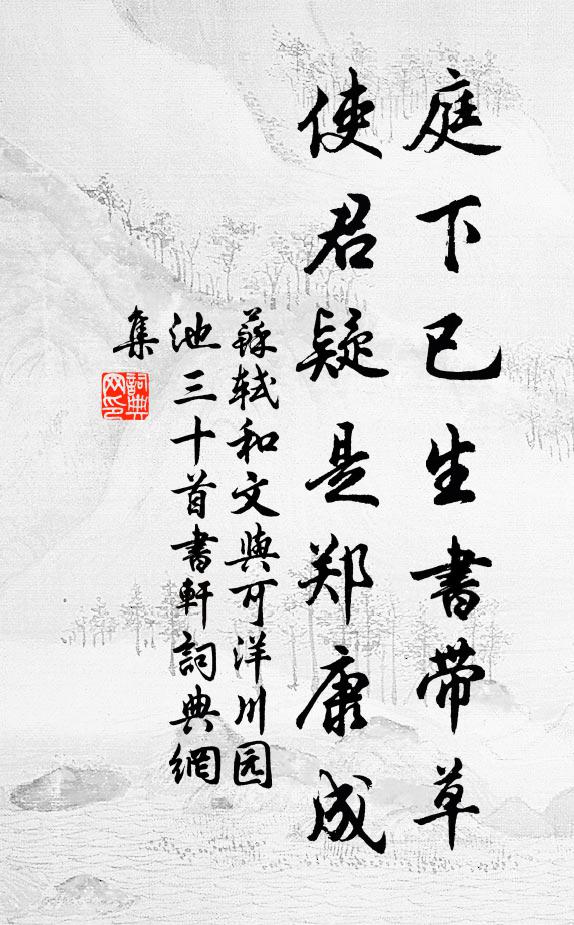 庭下已生書带草
使君疑是郑康成
蘇轼和文與可洋川园
池三十首書軒詞典網
集
詞典
网印